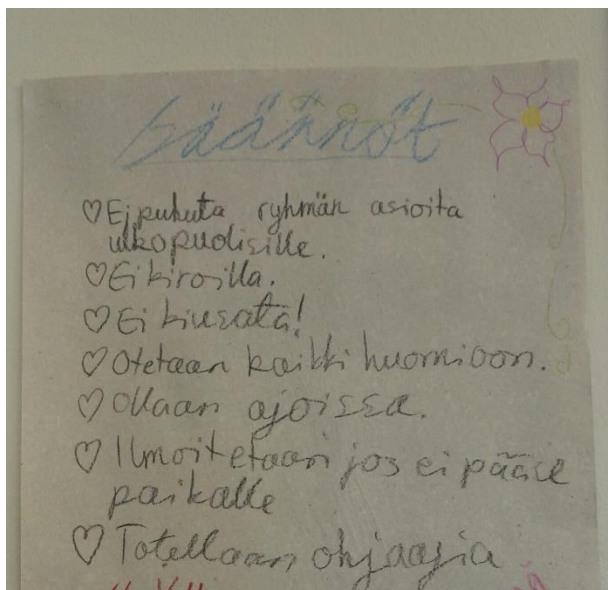 säännöt
♡ Ei puhuta ryhmän asioita
ulkopuolisille.
♡ Ei kiroilla.
♡ Ei kiusata!
♡ Otetaan kaikki huomioon.
♡ Ollaan ajoissa.
♡ Ilmoitetaan jos ei pääse
paikalle
♡ Totellaan ohjaajia